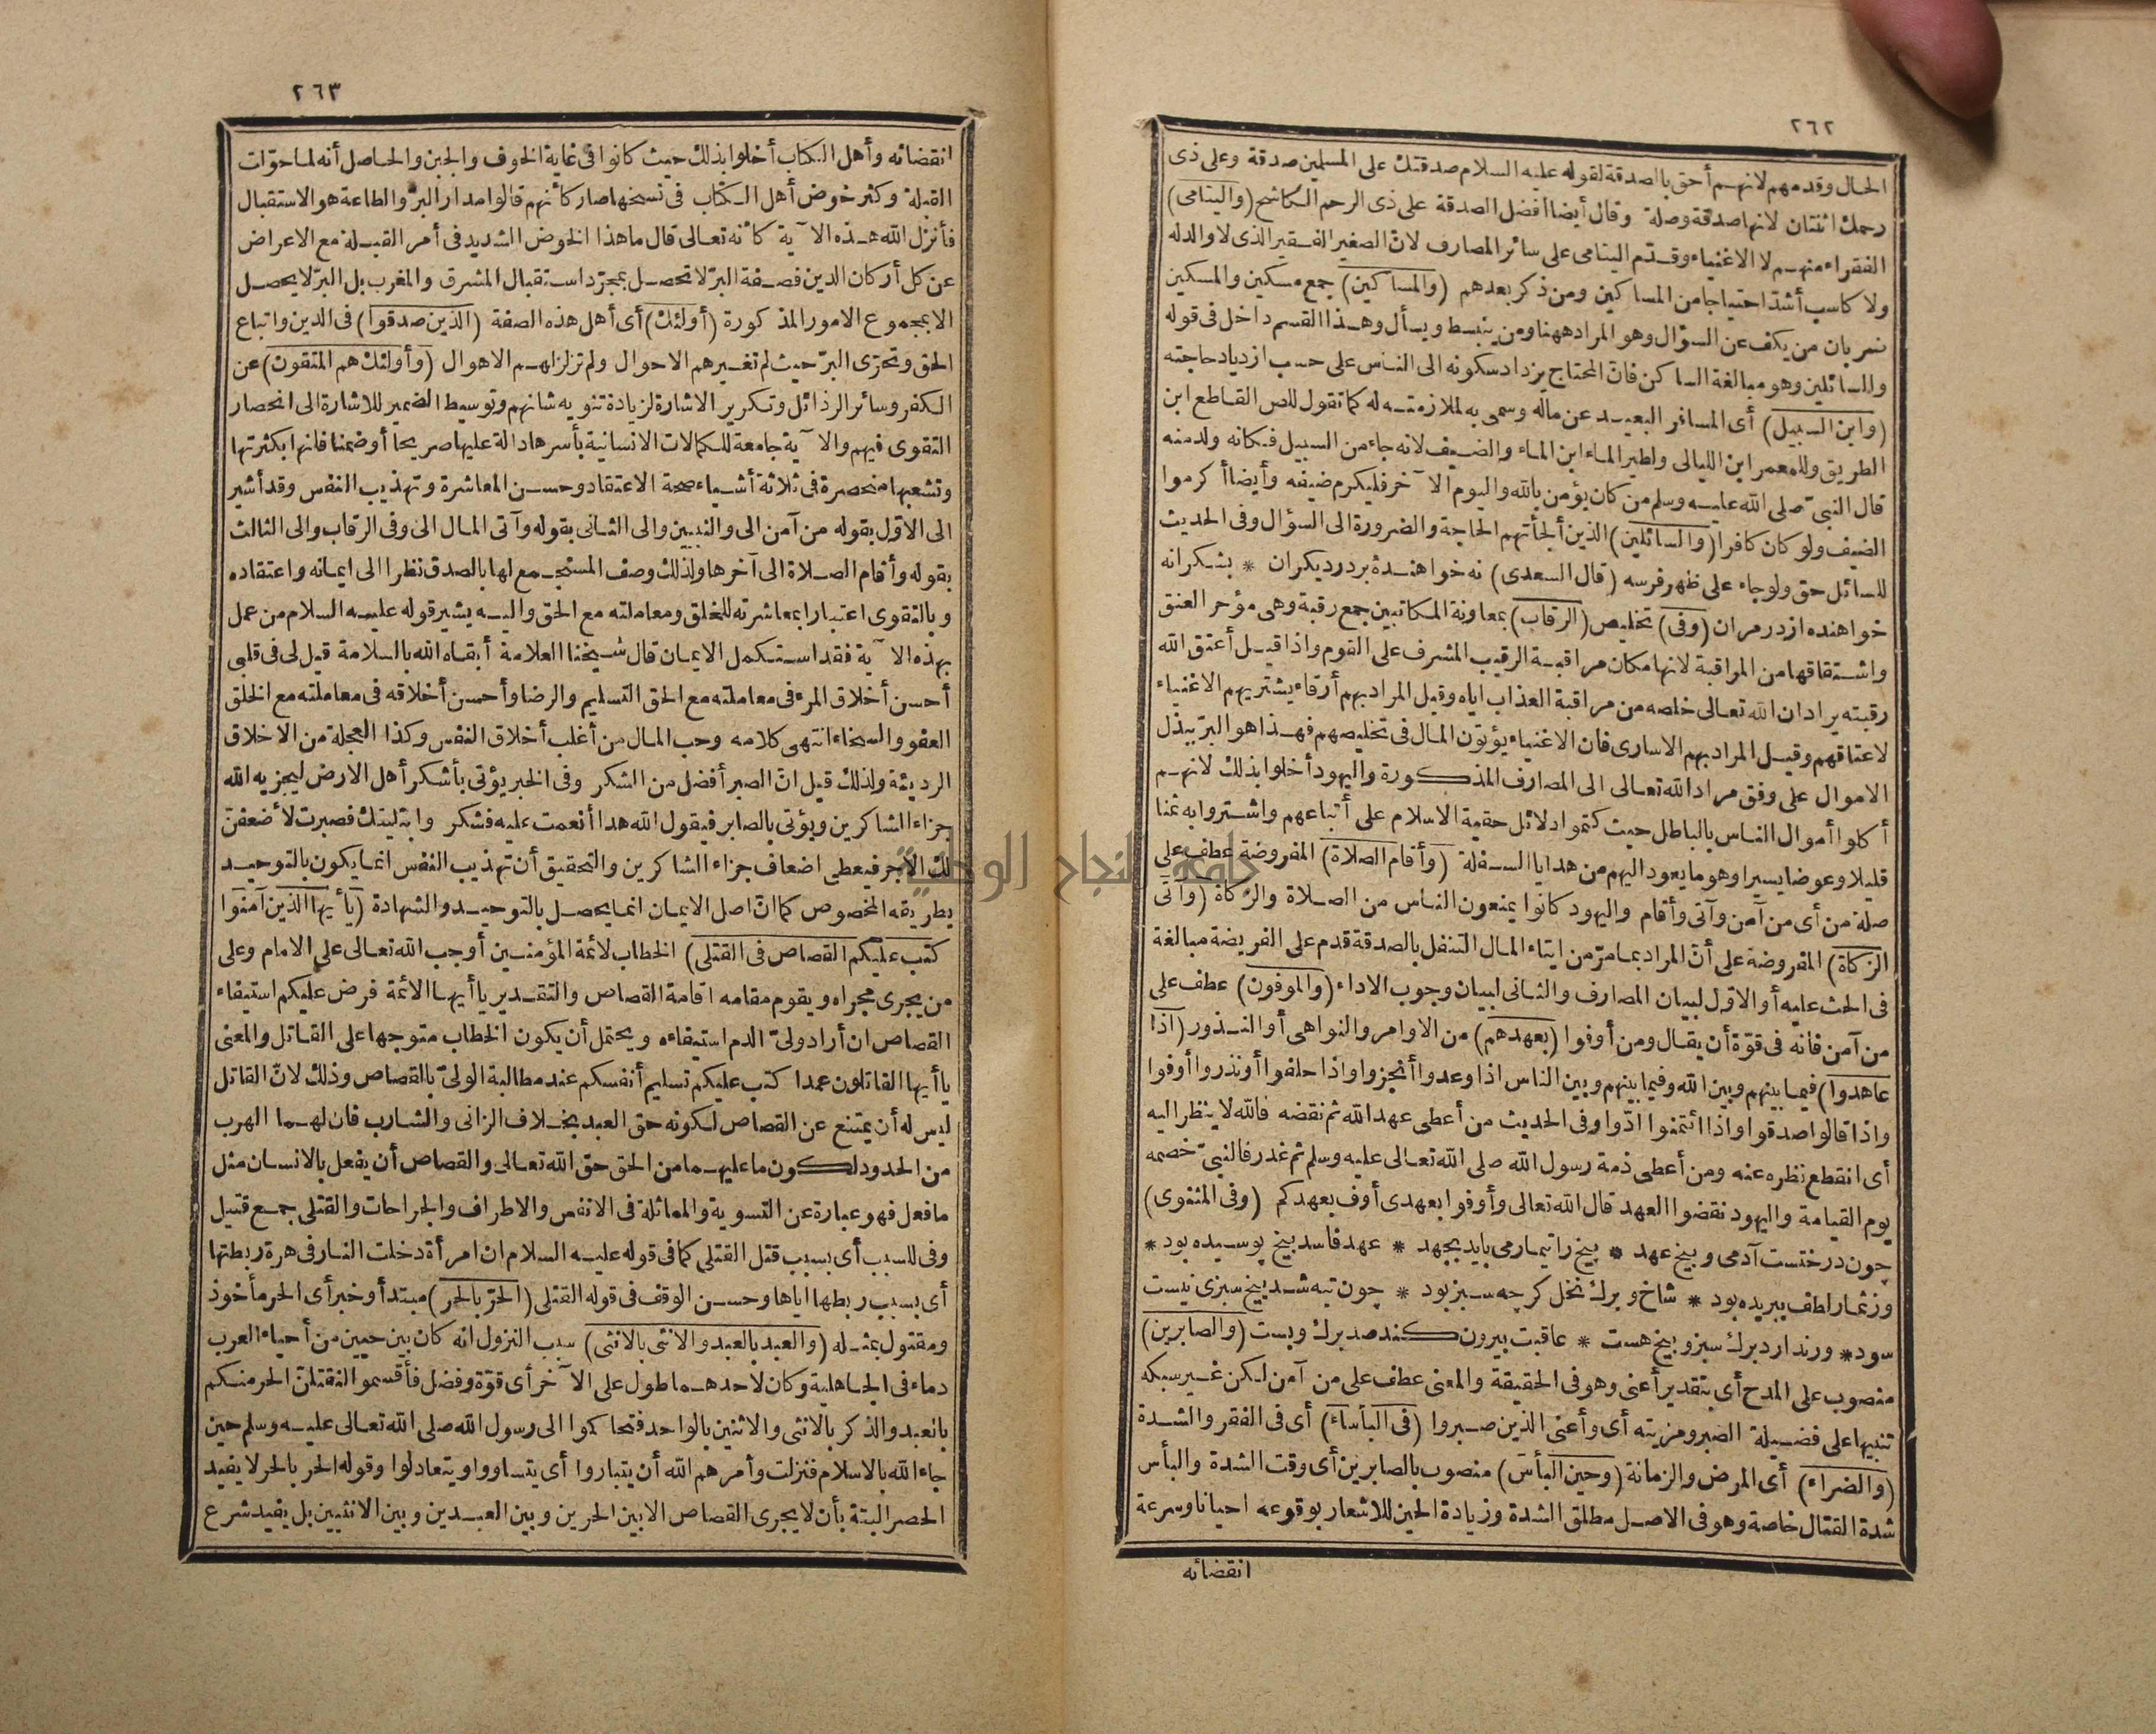 ٢٦٢
الحال وقدمهم لانهم أحق بالصدقة لقوله عليه السلام صدقتك على المسلمين صدقة وعلى ذى
رحمك اثنتان لانها صدقة وصلة وقال أيضا أفضل الصدقة على ذى الرحم الكاشح (واليتامى)
الفقراء منهم لا الاغنياء وقدّم اليتامى على سائر المصارف لانّ الصغير الفقير الذى لا والد له
ولا كاسب أشدّ احتياجا من المساكين ومن ذكر بعدهم (والمساكين) جمع مسكين والمسكين
ضربان من يكف عن السؤال وهو المراد ههنا ومن ينبسط ويسأل وهذا القسم داخل فى قوله
والسائلين وهو مبالغة الساكن فانّ المحتاج يزداد سكونه الى الناس على حسب ازدياد حاجته
(وابن السبيل) أى المسافر البعيد عن ماله وسمى به لملازمته له كما تقول للص القاطع ابن
الطريق وللمعمر ابن الليالى ولطير الماء ابن الماء والضيف لانه جاء من السبيل فكانه ولد منه
قال النبىّ صلى الله عليه وسلم من كان يؤمن بالله واليوم الآخر فليكرم ضيفه وأيضا أكرموا
الضيف ولو كان كافرا (والسائلين) الذين ألجأتهم الحاجة والضرورة الى السؤال وفى الحديث
للسائل حق ولو جاء على ظهر فرسه (قال السعدى) نه خواهندۀ بر در ديكران * بشكرانه
خواهنده از در مران (وفى) تخليص (الرقاب) بمعاونة المكاتبين جمع رقبة وهى مؤخر العنق
واشتقاقها من المراقبة لانها مكان مراقبة الرقيب المشرف على القوم واذا قيل أعتق الله
رقبته يراد ان الله تعالى خلصه من مراقبة العذاب اياه وقيل المراد بهم أرقاء يشتريهم الاغنياء
لاعتاقهم وقيل المراد بهم الاسارى فان الاغنياء يؤتون المال فى تخليصهم فهذا هو البرّ ببذل
الاموال على وفق مراد الله تعالى الى المصارف المذكورة واليهود أخلوا بذلك لانهم
أكلوا أموال الناس بالباطل حيث كتموا دلائل حقية الاسلام على أتباعهم واشتروا به ثمنا
قليلا وعوضا يسيرا وهو ما يعود اليهم من هدايا السفلة (وأقام الصلاة) المفروضة عطف على
صلة من أى من آمن وآتى وأقام واليهود كانوا يمنعون الناس من الصلاة والزكاة (وآتى
الزكاة) المفروضة على أنّ المراد بما مرّ من ايتاء المال التنفل بالصدقة قدم على الفريضة مبالغة
فى الحث عليه أو الاوّل لبيان المصارف والثانى لبيان وجوب الاداء (والموفون) عطف على
من آمن فانه فى قوّة أن يقال ومن أوفوا (بعهدهم) من الاوامر والنواهى أو النذور (اذا
عاهدوا) فيما بينهم وبين الله وفيما بينهم وبين الناس اذا وعدوا أنجزوا واذا حلفوا أو نذروا أوفوا
واذا قالوا صدقوا واذا ائتمنوا ادّوا وفى الحديث من أعطى عهد الله ثم نقضه فالله لا ينظر اليه
أى انقطع نظره عنه ومن أعطى ذمة رسول الله صلى الله تعالى عليه وسلم ثم غدر فالنبىّ خصمه
يوم القيامة واليهود نقضوا العهد قال الله تعالى وأوفوا بعهدى أوف بعهدكم (وفى المثنوى)
چون درختست آدمى وبيخ عهد * بيخ را تيمار مى بايد بجهد * عهد فاسد بيخ پوسيده بود *
وز ثمار لطف ببريده بود * شاخ وبرك نخل كرچه سبز بود * چون تبه شد بيخ سبزى نيست
سود * ور ندارد برك سبز وبيخ هست * عاقبت بيرون كند صد برك وبست (والصابرين)
منصوب على المدح أى بتقدير أعنى وهو فى الحقيقة والمعنى عطف على من آمن لكن غير سبكه
تنبيها على فضيلة الصبر ومزيته أى وأعنى الذين صبروا (فى البأساء) أى فى الفقر والشدة
(والضراء) أى المرض والزمانة (وحين البأس) منصوب بالصابرين أى وقت الشدة والبأس
شدة القتال خاصة وهو فى الاصل مطلق الشدة وزيادة الحين للاشعار بوقوعه احيانا وسرعة
انقضائه
٢٦٣
انقضائه وأهل الكتاب أخلوا بذلك حيث كانوا فى غاية الخوف والجبن والحاصل أنه لما حوّلت
القبلة وكثر خوض أهل الكتاب فى نسخها صار كأنهم قالوا مدار البرّ والطاعة هو الاستقبال
فأنزل الله هذه الآية كأنه تعالى قال ما هذا الخوض الشديد فى أمر القبلة مع الاعراض
عن كل أركان الدين فصفة البرّ لا تحصل بمجرّد استقبال المشرق والمغرب بل البرّ لا يحصل
الا بمجموع الامور المذكورة (أولئك) أى أهل هذه الصفة (الذين صدقوا) فى الدين واتباع
الحق وتحرّى البرّ حيث لم تغيرهم الاحوال ولم تزلزلهم الاهوال (وأولئك هم المتقون) عن
الكفر وسائر الرذائل وتكرير الاشارة لزيادة تنويه شانهم وتوسيط الضمير للاشارة الى انحصار
التقوى فيهم والآية جامعة للكمالات الانسانية بأسرها دالة عليها صريحا أو ضمنا فانها بكثرتها
وتشعبها منحصرة فى ثلاثة أشياء صحة الاعتقاد وحسن المعاشرة وتهذيب النفس وقد أشير
الى الاوّل بقوله من آمن الى والنبيين والى الثانى بقوله وآتى المال الى وفى الرقاب والى الثالث
بقوله وأقام الصلاة الى آخرها ولذلك وصف المستجمع لها بالصدق نظرا الى ايمانه واعتقاده
وبالتقوى اعتبارا بمعاشرته للخلق ومعاملته مع الحق واليه يشير قوله عليه السلام من عمل
بهذه الآية فقد استكمل الايمان قال شيخنا العلامة أبقاه الله بالسلامة قيل لى فى قلبى
أحسن أخلاق المرء فى معاملته مع الحق التسليم والرضا وأحسن أخلاقه فى معاملته مع الخلق
العفو والسخاء انتهى كلامه وحب المال من أغلب أخلاق النفس وكذا العجلة من الاخلاق
الرديئة ولذلك قيل انّ الصبر أفضل من الشكر وفى الخبر يؤتى بأشكر أهل الارض ليجزيه الله
جزاء الشاكرين ويؤتى بالصابر فيقول الله هذا أنعمت عليه فشكر وابتليتك فصبرت لأضعفنّ
لك الأجر فيعطى اضعاف جزاء الشاكرين والتحقيق أن تهذيب النفس انما يكون بالتوحيد
بطريقه المخصوص كما انّ اصل الايمان انما يحصل بالتوحيد والشهادة (يا أيها الذين آمنوا
كتب عليكم القصاص فى القتلى) الخطاب لائمة المؤمنين أوجب الله تعالى على الامام وعلى
من يجرى مجراه ويقوم مقامه اقامة القصاص والتقدير يا أيها الائمة فرض عليكم استيفاء
القصاص ان أراد ولىّ الدم استيفاءه ويحتمل أن يكون الخطاب متوجها على القاتل والمعنى
يا أيها القاتلون عمدا كتب عليكم تسليم أنفسكم عند مطالبة الولىّ بالقصاص وذلك لانّ القاتل
ليس له أن يمتنع عن القصاص لكونه حق العبد بخلاف الزانى والشارب فان لهما الهرب
من الحدود لكون ما عليهما من الحق حق الله تعالى والقصاص أن يفعل بالانسان مثل
ما فعل فهو عبارة عن التسوية والمماثلة فى الانفس والاطراف والجراحات والقتلى جمع قتيل
وفى للسبب أى بسبب قتل القتلى كما فى قوله عليه السلام ان امرأة دخلت النار فى هرة ربطتها
أى بسبب ربطها اياها وحسن الوقف فى قوله القتلى (الحرّ بالحرّ) مبتدأ وخبر أى الحر مأخوذ
ومقتول بمثله (والعبد بالعبد والانثى بالانثى) سبب النزول انه كان بين حيين من أحياء العرب
دماء فى الجاهلية وكان لاحدهما طول على الآخر أى قوّة وفضل فأقسموا لنقتلنّ الحر منكم
بالعبد والذكر بالانثى والاثنين بالواحد فتحاكموا الى رسول الله صلى الله تعالى عليه وسلم حين
جاء الله بالاسلام فنزلت وأمرهم الله أن يتباروا أى يتساووا ويتعادلوا وقوله الحر بالحر لا يفيد
الحصر البتة بأن لا يجرى القصاص الا بين الحرين وبين العبدين وبين الانثيين بل يفيد شرع
جامعة النجاح الوطنية